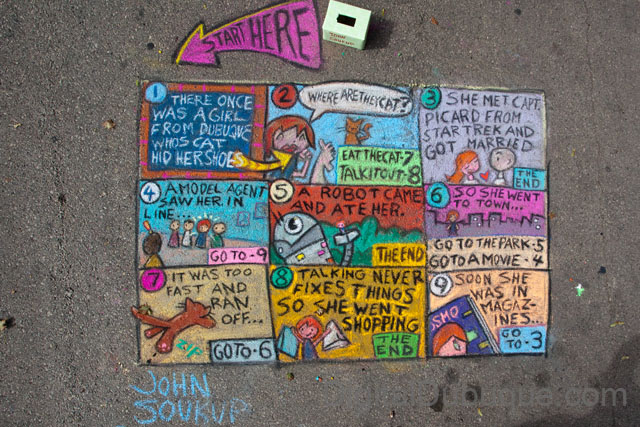 START HERE
1
THERE ONCE
WAS A GIRL
FROM DUBUQUE
WHOS CAT
HID HER SHOES
2
WHERE ARE THEY CAT?
EAT THE CAT-7
TALK IT OUT-8
3
SHE MET CAPT.
PICARD FROM
STAR TREK AND
GOT MARRIED
THE
END
4
A MODEL AGENT
SAW HER IN
LINE...
GO TO-9
5
A ROBOT CAME
AND ATE HER.
THE END
6
SO SHE WENT
TO TOWN...
GO TO THE PARK-5
GO TO A MOVIE-4
7
IT WAS TOO
FAST AND
RAN
OFF...
ZIP
GO TO-6
8
TALKING NEVER
FIXES THINGS
SO SHE WENT
SHOPPING
THE
END
9
SOON SHE
WAS IN
MAGAZ-
INES...
SMO
GO
TO-3
JOHN
SOUKUP